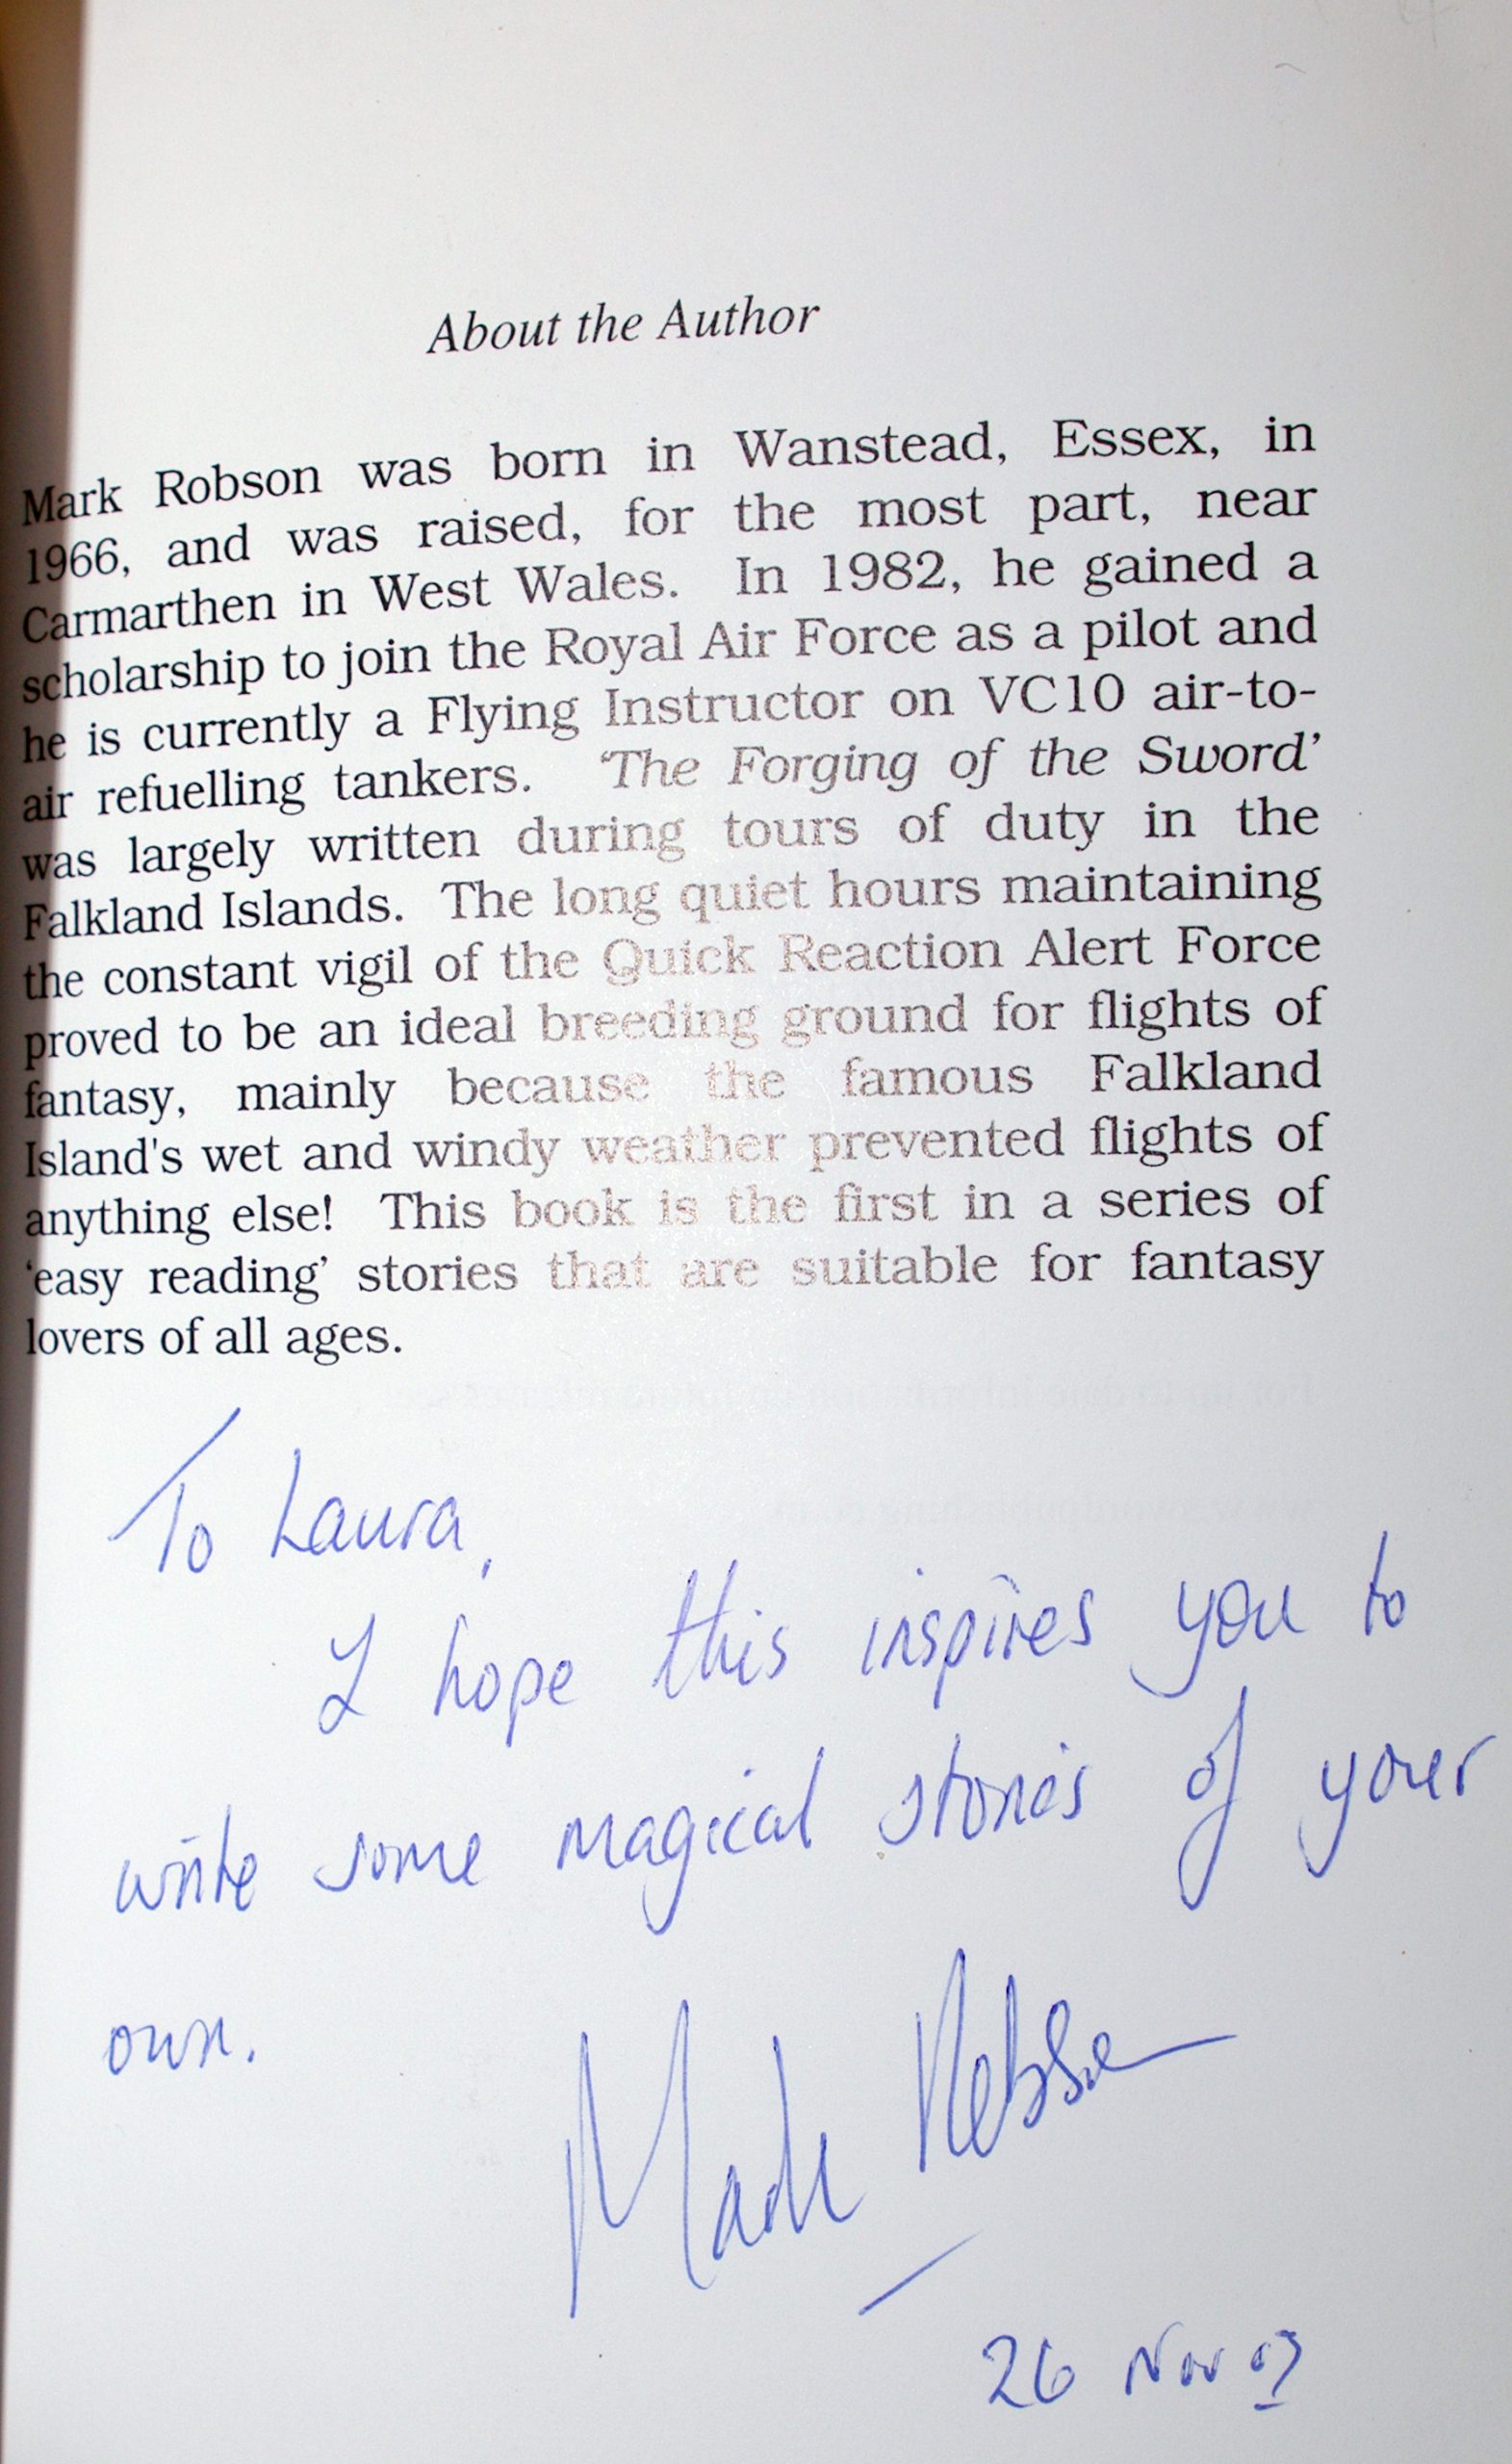 About the Author
Mark Robson was born in Wanstead, Essex, in
1966, and was raised, for the most part, near
Carmarthen in West Wales. In 1982, he gained a
scholarship to join the Royal Air Force as a pilot and
he is currently a Flying Instructor on VC10 air-to-
air refuelling tankers. ‘The Forging of the Sword’
was largely written during tours of duty in the
Falkland Islands. The long quiet hours maintaining
the constant vigil of the Quick Reaction Alert Force
proved to be an ideal breeding ground for flights of
fantasy, mainly because the famous Falkland
Island's wet and windy weather prevented flights of
anything else! This book is the first in a series of
‘easy reading’ stories that are suitable for fantasy
lovers of all ages.
To Laura,
I hope this inspires you to
write some magical stories of your
own.
Mark Robson
26 Nov